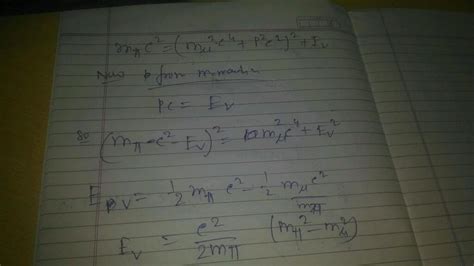 m_π c² = (m_μ² c⁴ + p² c²)² + E_ν
Now p from
pc = E_ν
so (m_π c² - E_ν)² = m_μ² c⁴ + E_ν²
E_ν = 1/2 m_π c² - 1/2 m_μ² c²/m_π
E_ν = c²/2m_π (m_π² - m_μ²)